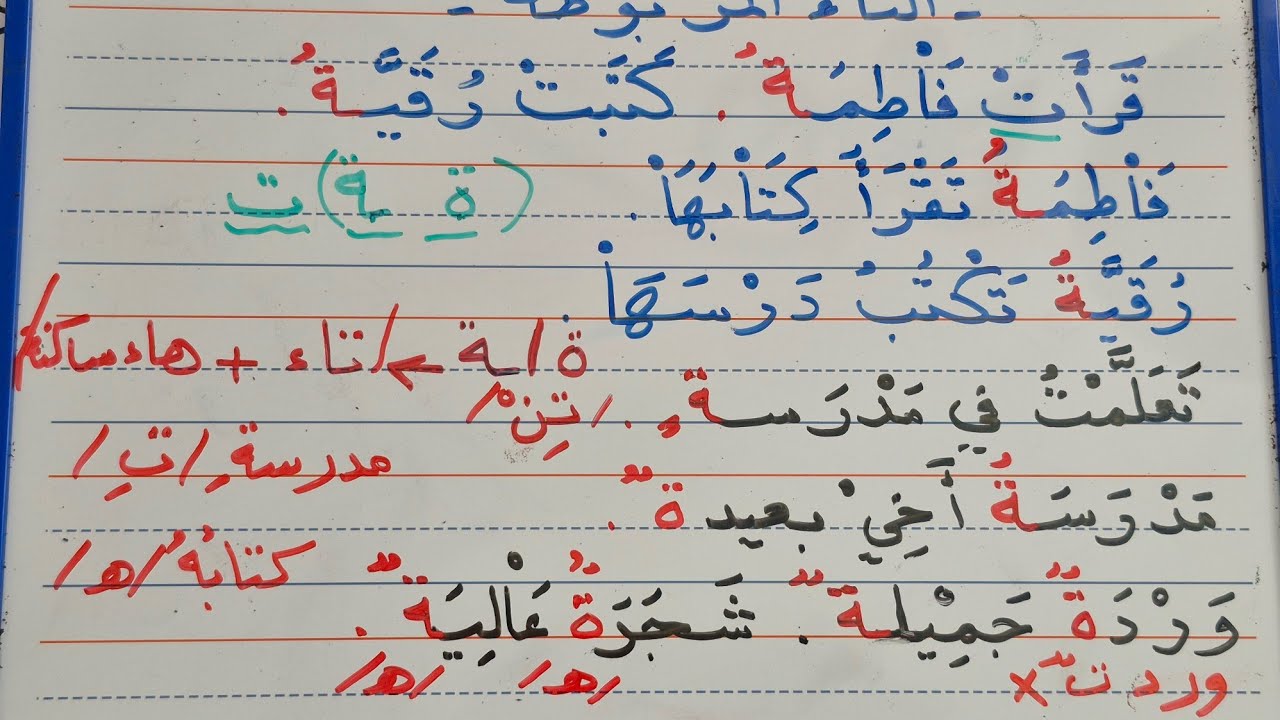 - التاء المربوطة -
قَرَأَتْ فَاْطِمَةُ . كَتَبَتْ رُقَيَّةُ .
فَاْطِمَةُ تَقْرَأُ كِتَاْبَهَاْ . (ة ـة) ت
رُقَيَّةُ تَكْتُبُ دَرْسَهَاْ .
ة / ـة ← / تاء + هاء ساكنة /
تَعَلَّمْتُ فِي مَدْرَسـةٍ . / تِنْ /
مدرسةِ / تِ /
مَدْرَسَةُ أَخِيْ بعيدةٌ .
كتابهُ / هـ /
وَرْدَةٌ جَمِيْلـةٌ . شَجَرَةٌ عَاْلِيَةٌ .
وردتٌ × / هـ / / هـ /